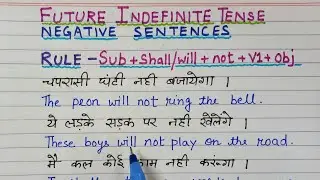 FUTURE INDEFINITE TENSE
NEGATIVE SENTENCES
RULE - Sub + Shall/will + not + V1 + Obj
चपरासी घंटी नही बजायेगा ।
The peon will not ring the bell.
ये लड़के सड़क पर नही खेलेंगे ।
These boys will not play on the road.
मै कल कोई काम नही करूंगा ।